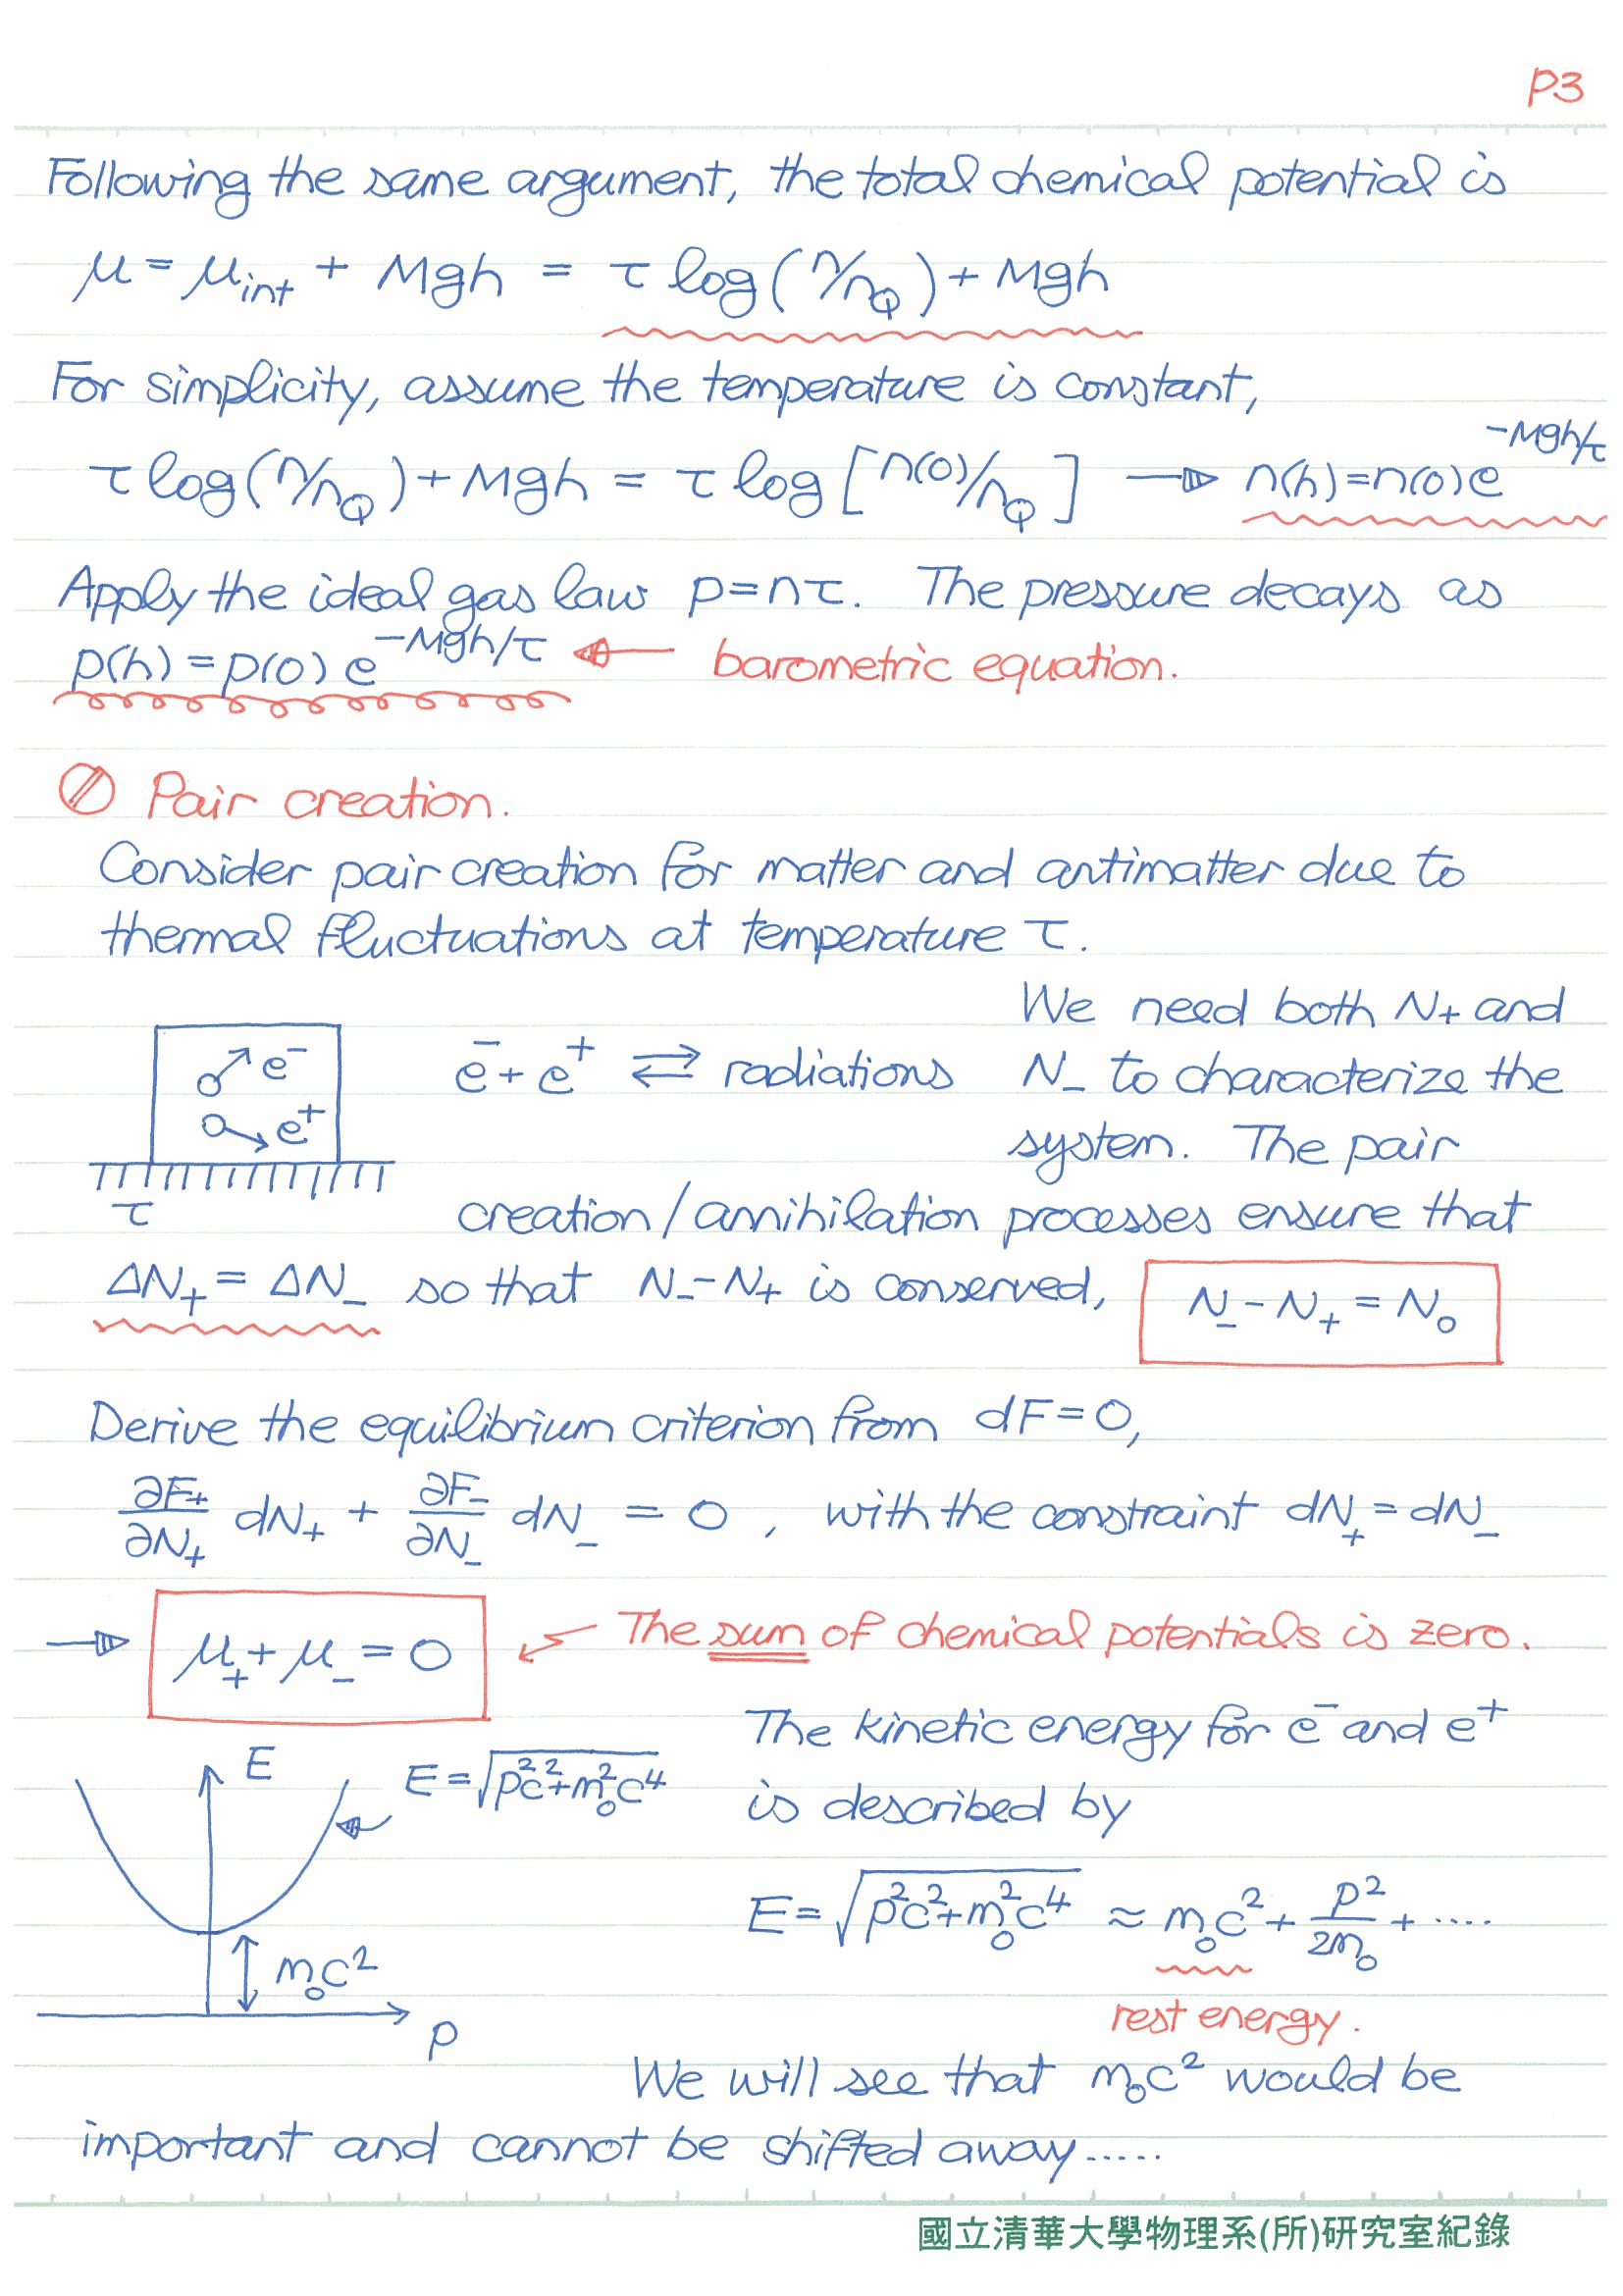 P3
Following the same argument, the total chemical potential is
μ = μ_int + Mgh = τ log(n/n_Q) + Mgh
For simplicity, assume the temperature is constant,
τ log(n/n_Q) + Mgh = τ log[n(0)/n_Q] → n(h) = n(0) e^{-Mgh/τ}
Apply the ideal gas law p = nτ. The pressure decays as
p(h) = p(0) e^{-Mgh/τ} ← barometric equation.
Pair creation.
Consider pair creation for matter and antimatter due to
thermal fluctuations at temperature τ.
e⁻
e⁺
τ
e⁻ + e⁺ ⇄ radiations
We need both N₊ and
N₋ to characterize the
system. The pair
creation/annihilation processes ensure that
ΔN₊ = ΔN₋ so that N₋ - N₊ is conserved, N₋ - N₊ = N₀
Derive the equilibrium criterion from dF = 0,
∂F₊/∂N₊ dN₊ + ∂F₋/∂N₋ dN₋ = 0 , with the constraint dN₊ = dN₋
→ μ₊ + μ₋ = 0 ← The sum of chemical potentials is zero.
E
E = √(p²c² + m₀²c⁴)
m₀c²
p
The kinetic energy for e⁻ and e⁺
is described by
E = √(p²c² + m₀²c⁴) ≈ m₀c² + p²/2m₀ + ....
rest energy.
We will see that m₀c² would be
important and cannot be shifted away.....
國立清華大學物理系(所)研究室紀錄